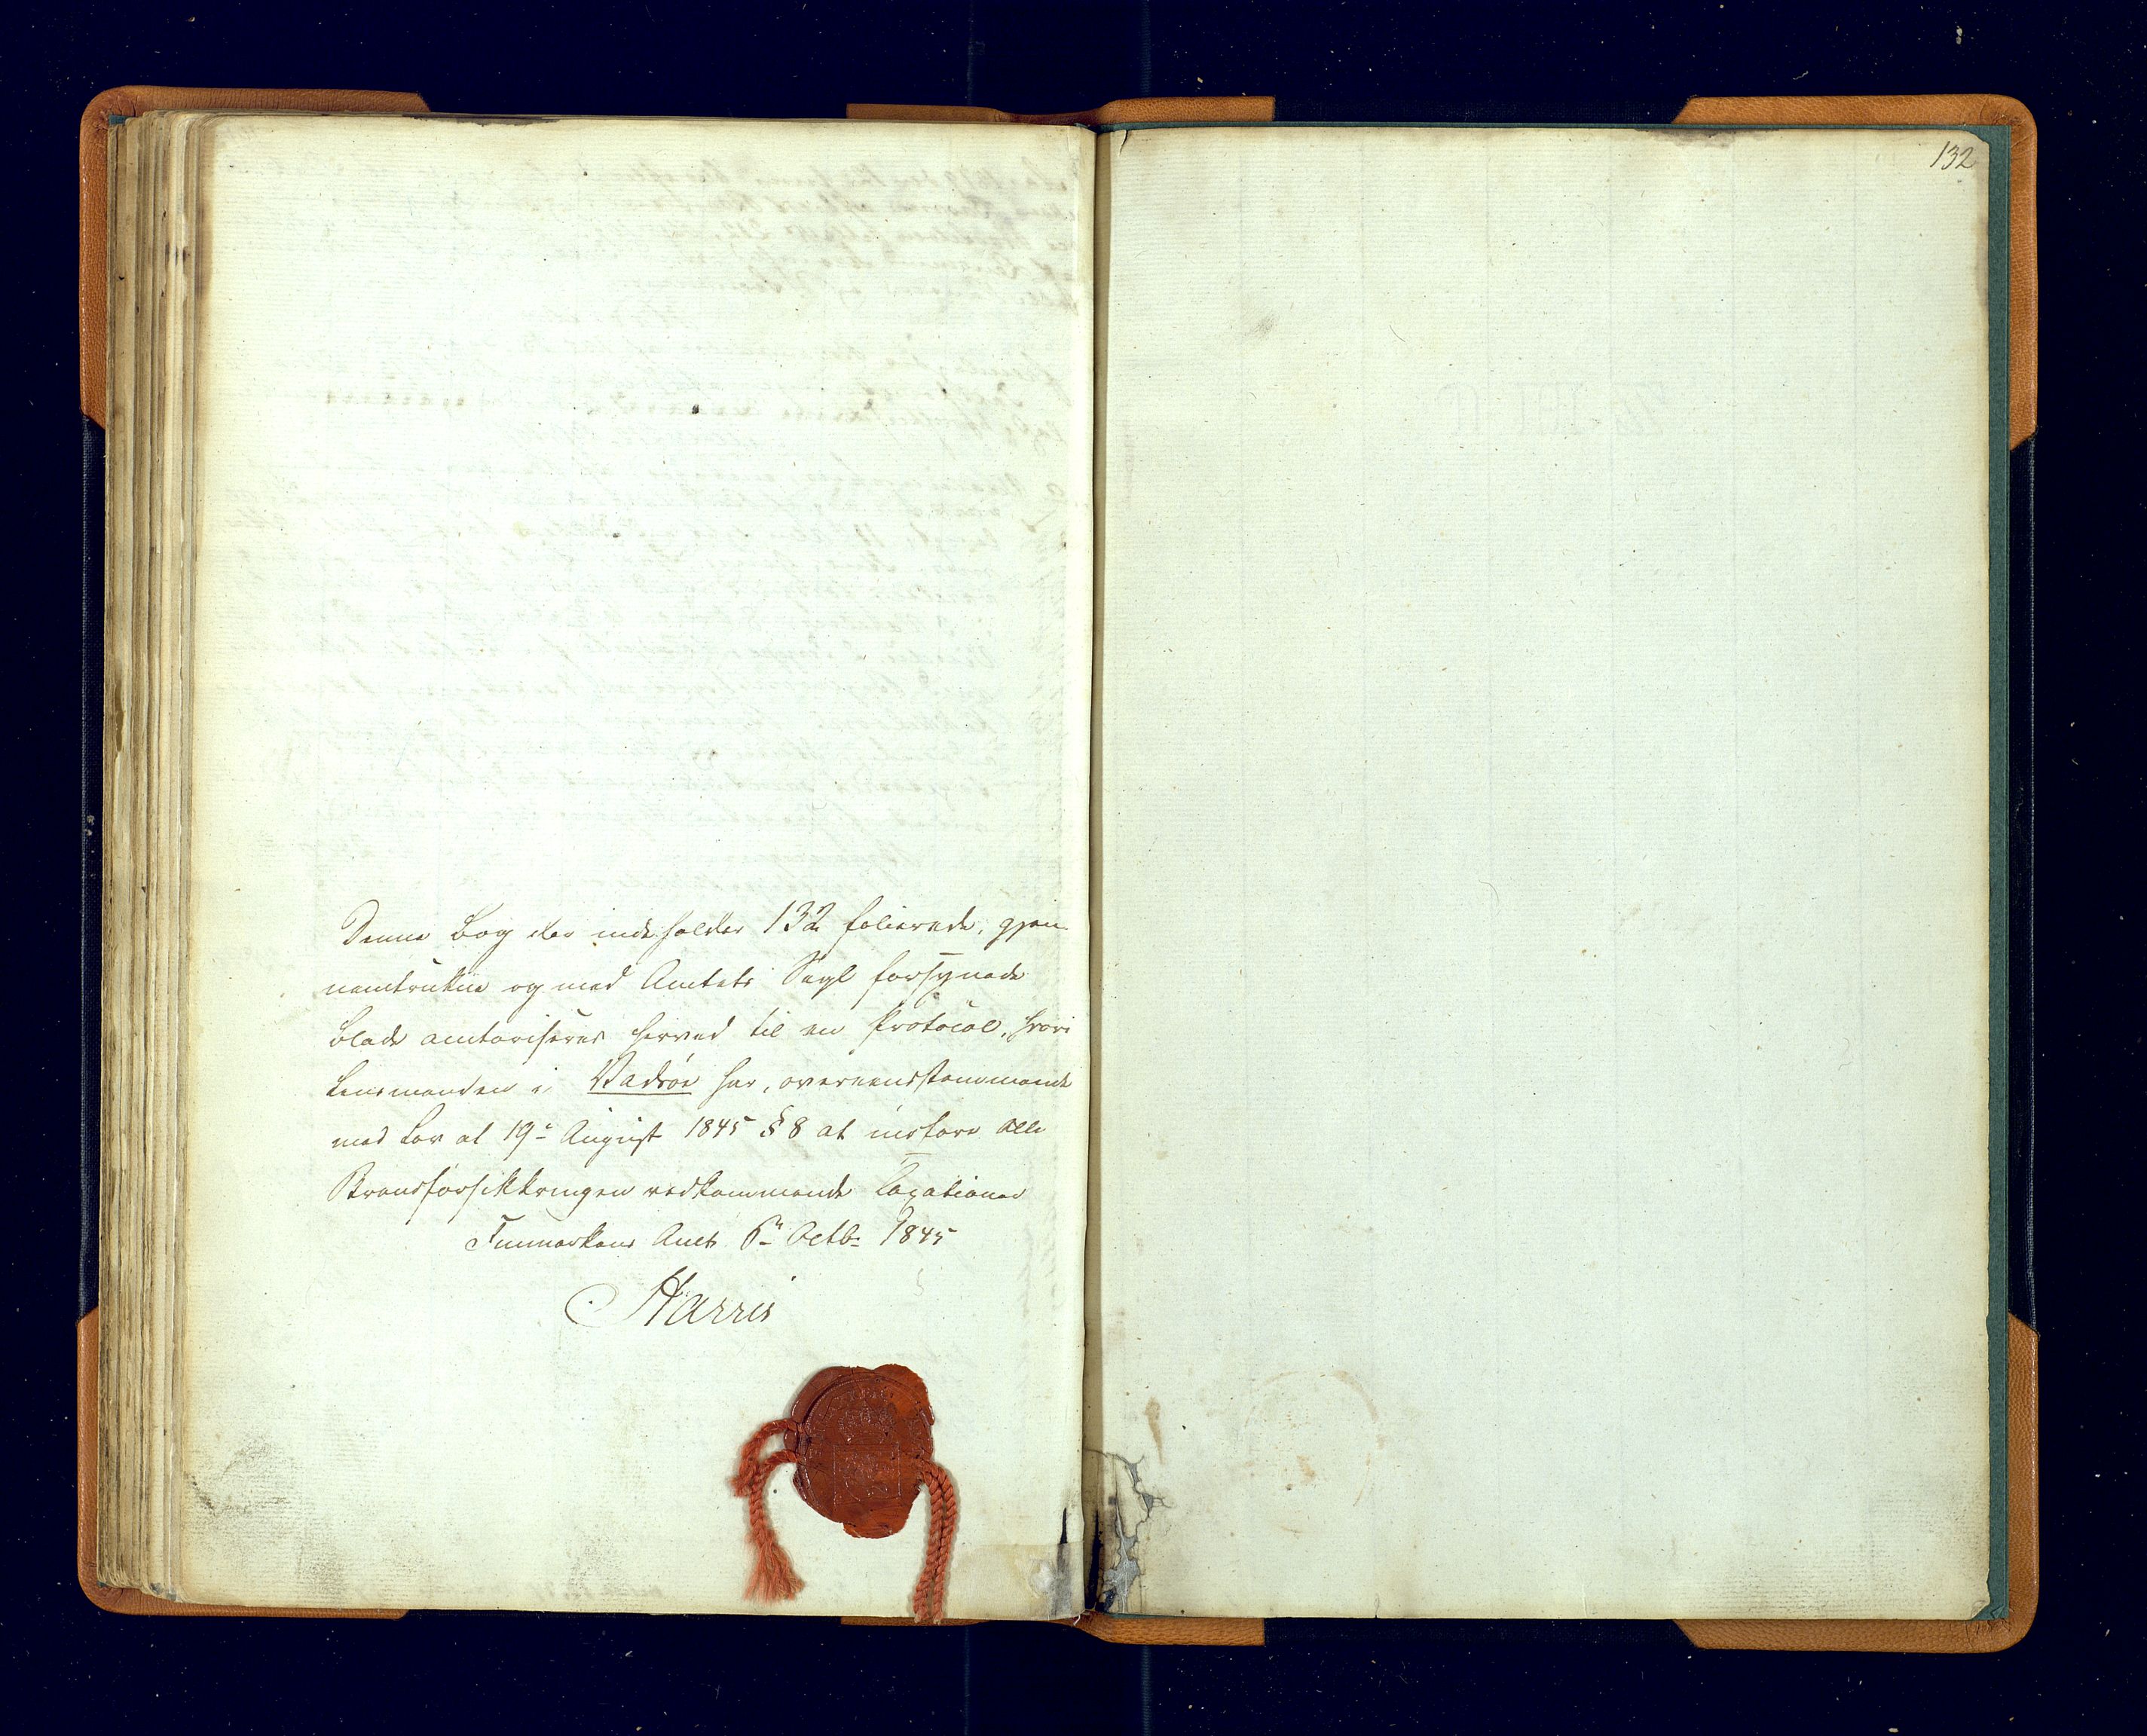 132
Denne Bog der indeholder 132 folierede, gjen-
nemtrukne og med Amtets Segl forsynede
Blade autoriseres herved til en Protocol, hvori
Lensmanden i Vadsöe har, overeensstemmende
med Lov af 19de August 1845 § 8 at indføre alle
Brandforsikkringen vedkommende Taxationer
Finmarkens Amt 6te Octbr 1845
Harris